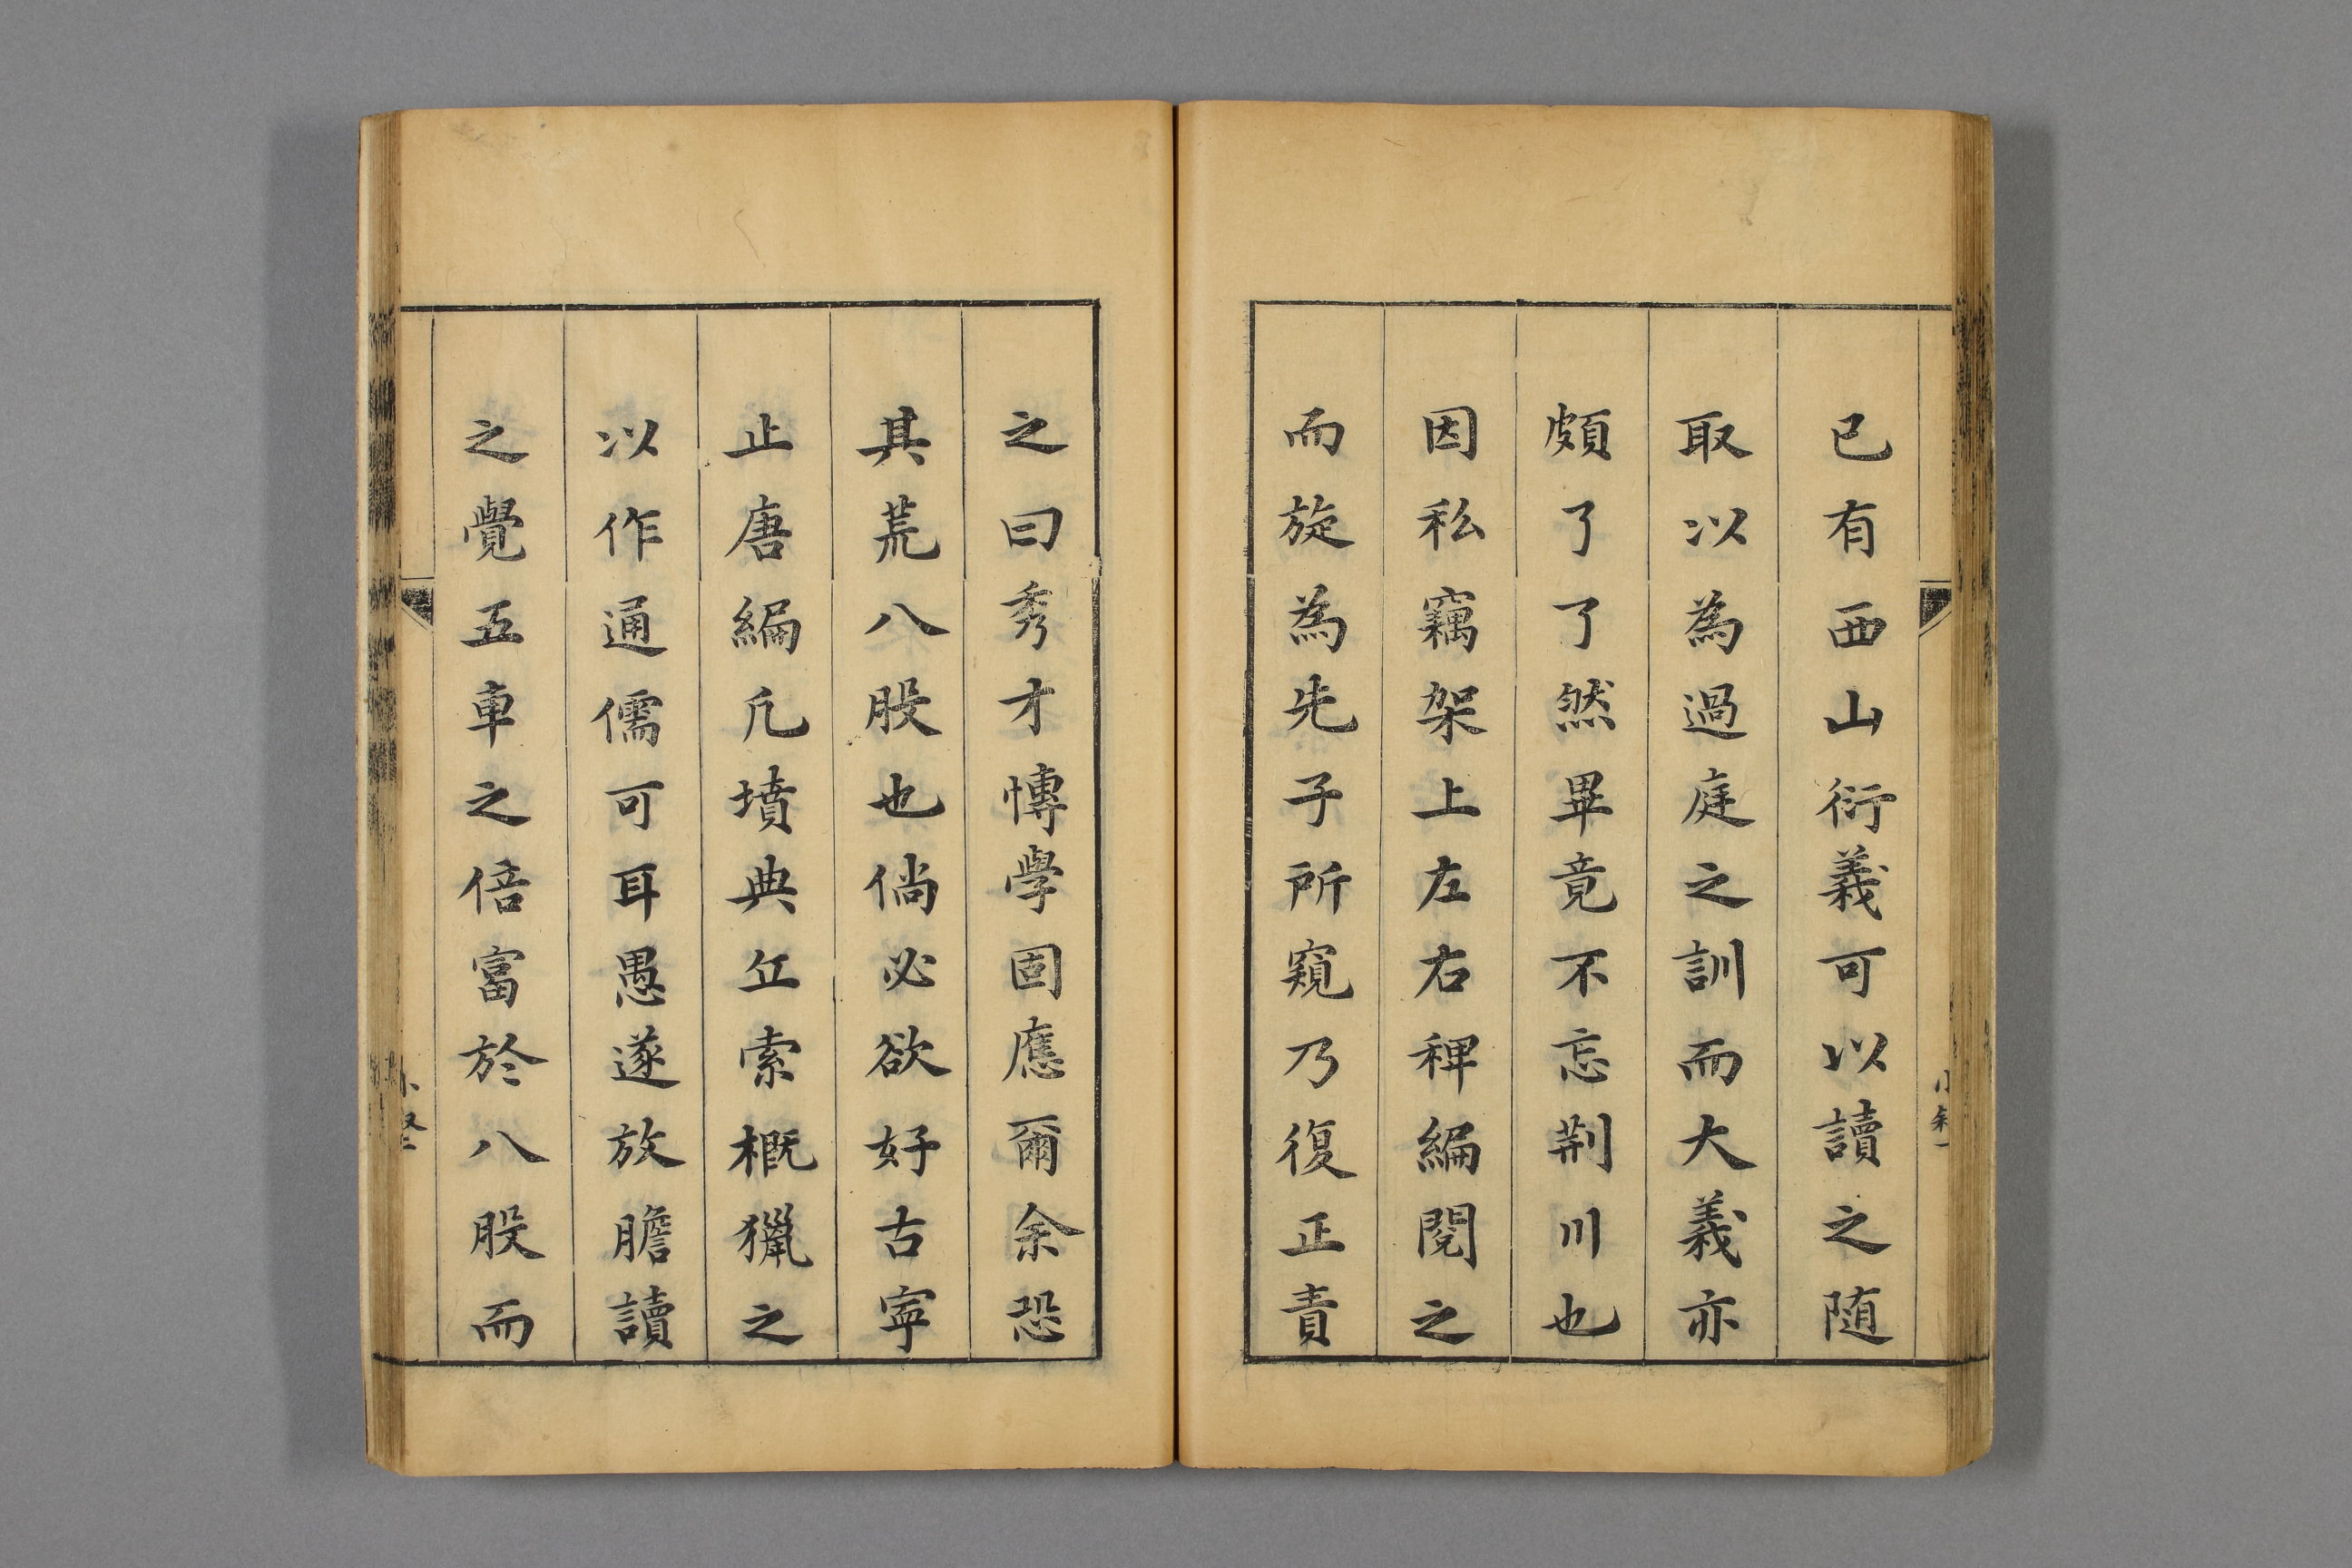 已有西山衍義可以讀之随
取以為過庭之訓而大義亦
頗了了然畢竟不忘荆川也
因私竊架上左右稗編閱之
而旋為先子所窺乃復正責
之曰秀才博學固應爾余恐
其荒八股也倘必欲好古寧
止唐編凡墳典丘索概獵之
以作通儒可耳愚遂放膽讀
之覺五車之倍富於八股而